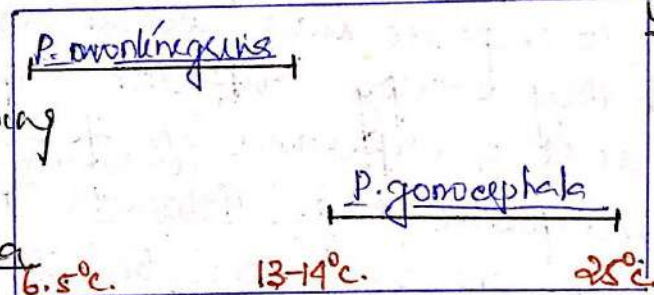 P. montenegrina
P. gonocephala
6.5°c. 13-14°c. 25°c.